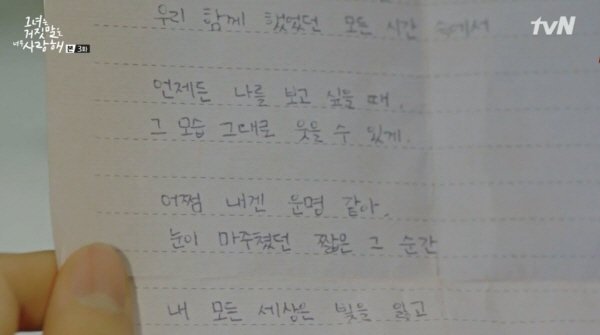 그녀는
거짓말을
너무
사랑해
3화
tvN
우리 함께 했었던 모든 시간 속에서
언제든 나를 보고 싶을 때,
그 모습 그대로 웃을 수 있게.
어쩜 내겐 운명 같아.
눈이 마주쳤던 짧은 그 순간
내 모든 세상은 빛을 잃고